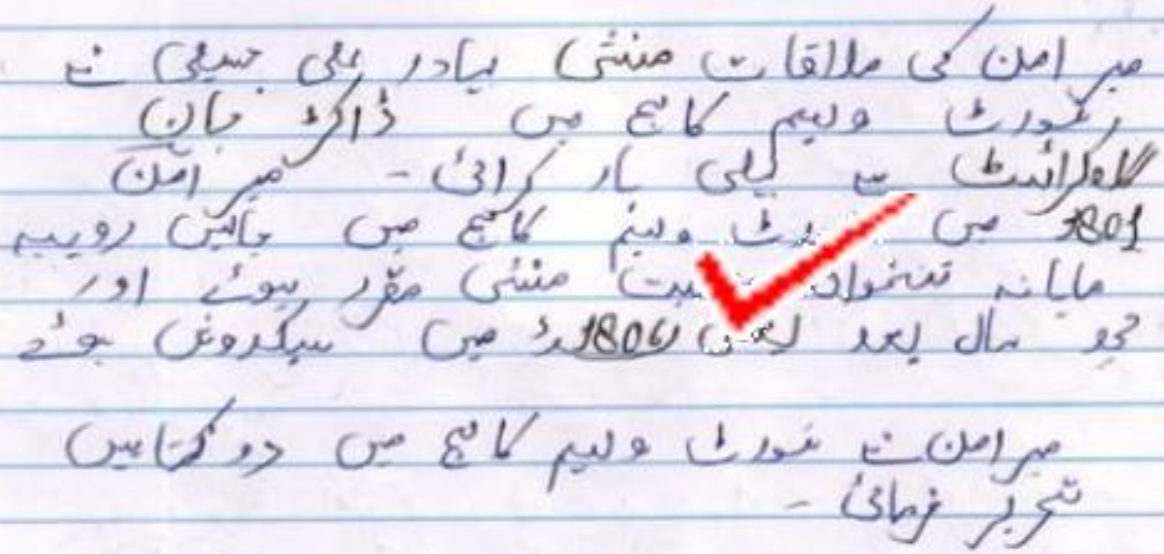 میر امن کی ملاقات منشی بہادر علی حسینی نے
فورٹ ولیم کالج میں ڈاکٹر جان
گلکرائسٹ سے پہلی بار کرائی ۔ میر امن
1801ء میں ولیم کالج میں چالیس روپیہ
ماہانہ تنخواہ منشی مقرر ہوئے اور
چھ سال بعد یعنی 1806ء میں سبکدوش ہوئے
میر امن نے فورٹ ولیم کالج میں دو کتابیں
تحریر فرمائی ۔